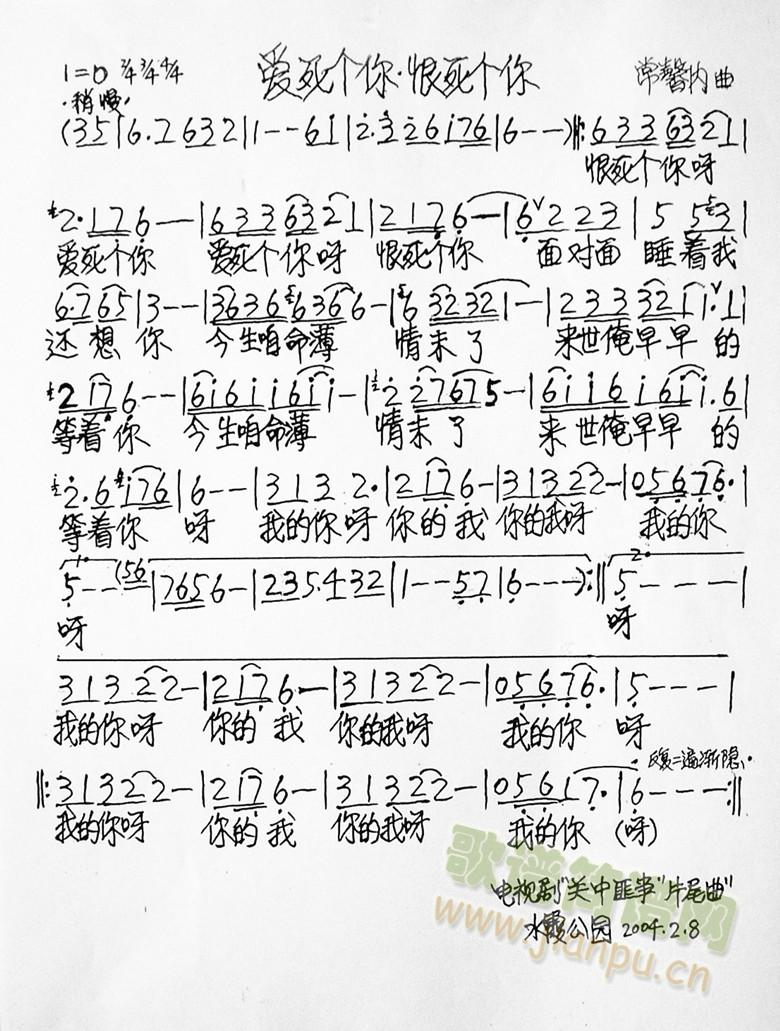 爱死个你·恨死个你
1=D 2/4 3/4 4/4
常馨内 曲
·稍慢·
(35|6.7 632|1--61|2.3 26176|6---)‖:633 6321|
恨死个你呀
2.176--|633 6321|2 176--|6ⱽ223|5 5 3|
爱死个你 爱死个你呀 恨死个你 面对面 睡着我
6.765|3--|3636 6366-|6 32321-|2333211.1|
还想你 今生咱命薄 情未了 来世俺早早的
2 176--|61611611-|2 27675-|61161611.6|
等着你 今生咱命薄 情未了 来世俺早早的
2.6 176|6--|3132.|2176-|313222-|05676.|
等着你 呀 我的你呀 你的我 你的我呀 我的你
1.
5--(56|7656-|235.432|1--57|6---):‖
2.
5----|
呀 呀
313222-|2176-|313222-|05676.|5---|
我的你呀 你的我 你的我呀 我的你 呀
反复二遍渐隐.
‖:313222-|2176-|313222-|05617.|6---:‖
我的你呀 你的我 你的我呀 我的你 (呀)
电视剧"关中匪事"片尾曲"
水霞公园 2004.2.8
歌谱简谱网
www.jianpu.cn